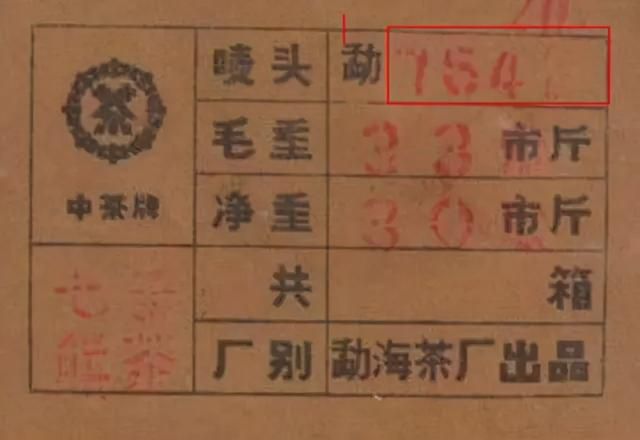 唛头 勐 754
毛重 33 市斤
中茶牌
净重 30 市斤
七子
饼茶
共 箱
厂别 勐海茶厂出品